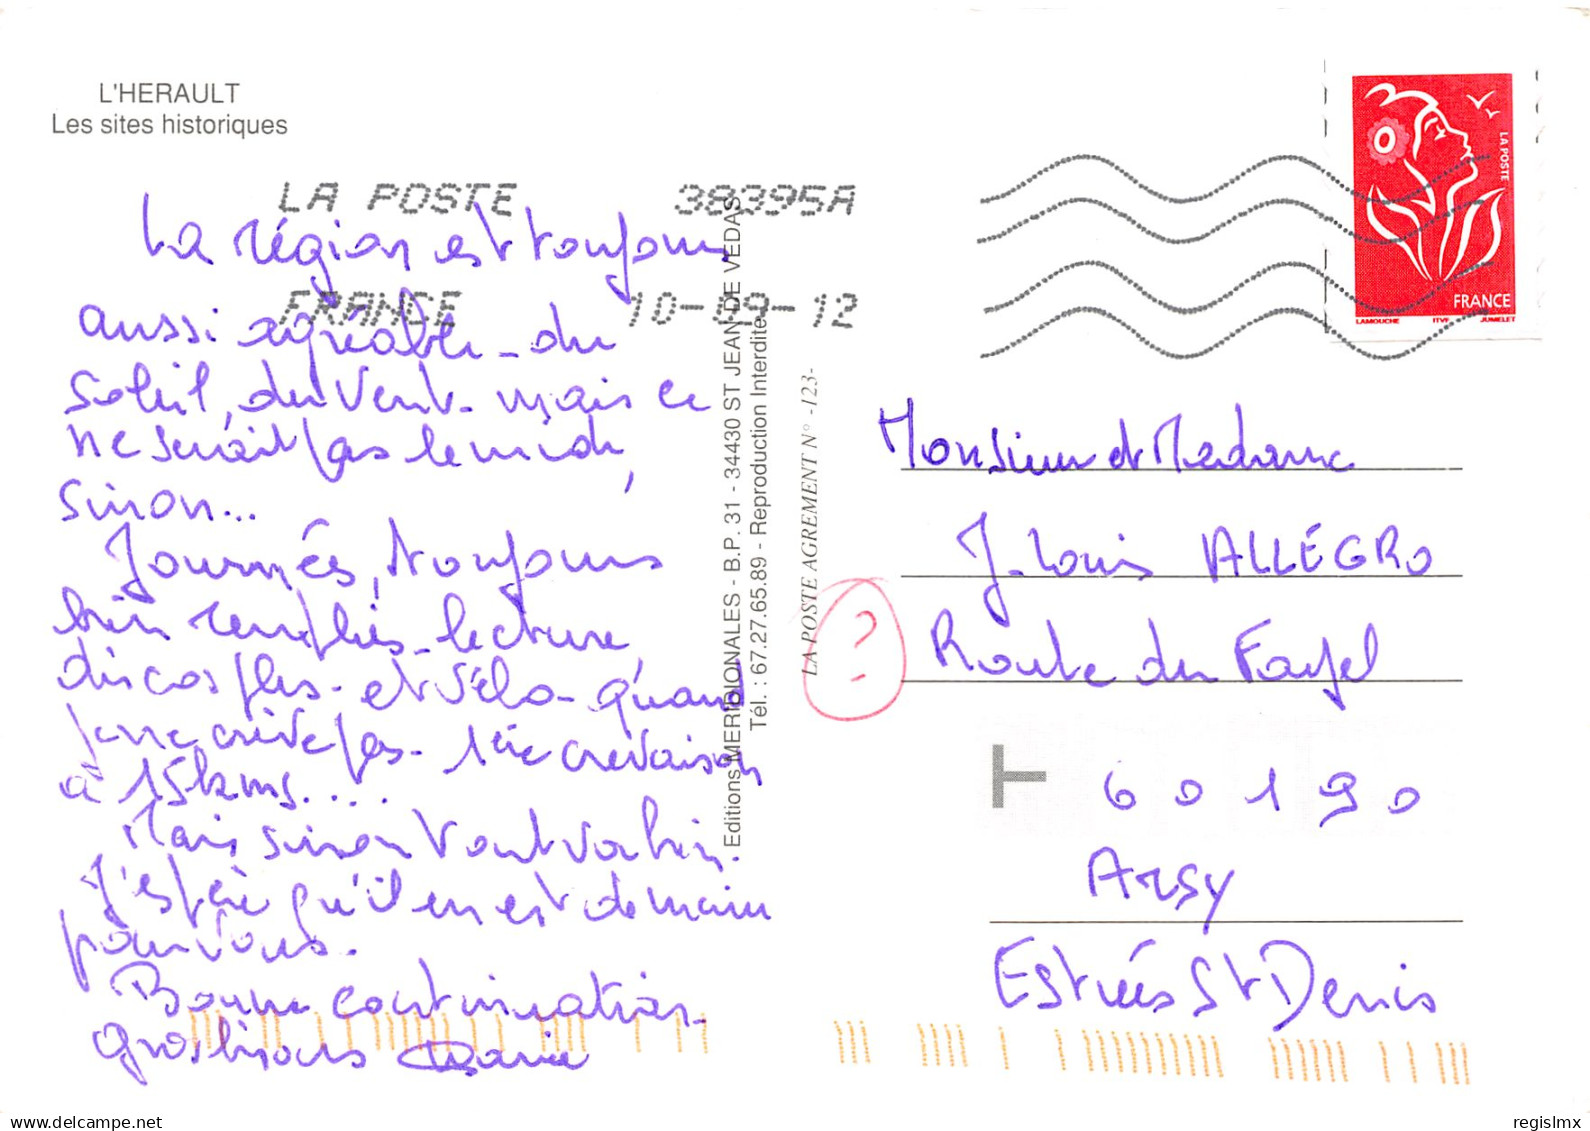 L'HERAULT
Les sites historiques
LA POSTE 38395A
FRANCE 10-09-12
LA POSTE
FRANCE
LAMOUCHE ITVF JUMELET
La région est toujours
aussi agréable - du
soleil, du vent - mais ce
ne serait pas le midi,
sinon...
Journées, toujours
bien remplies - lecture,
discos, - et vélo - quand
je ne crève pas - 1ère crevaison
à 15 kms....
Mais sinon tout va bien.
J'espère qu'il en est de même
pour vous.
Bonne continuation.
Gros bisous Marie
Editions MERIDIONALES - B.P. 31 - 34430 ST JEAN DE VEDAS
Tél. : 67.27.65.89 - Reproduction Interdite
LA POSTE AGREMENT N° -123-
?
Monsieur et Madame
J-Louis ALLÉGRO
Route du Fayel
T 60190
Arsy
Estrées St Denis
regislmx